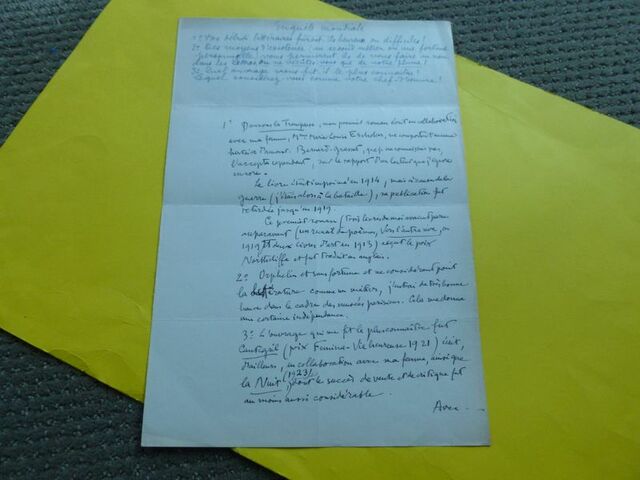 Enquête mondiale
1° Vos débuts littéraires furent-ils heureux ou difficiles?
2° Des moyens d'existence: un second métier ou une fortune
personnelle, vous permirent-ils de vous faire un nom
dans les lettres ou ne vécûtes-vous que de votre plume?
3° Quel ouvrage vous fit le plus connaître?
Lequel considérez-vous comme votre chef-d'œuvre?
1° Dansons la Trompeuse, mon premier roman écrit en collaboration
avec ma femme, Mme Marie-Louise Escholier, ne comportait aucune
. Bernard Grasset, que je ne connaissais pas,
l'accepta cependant, sur le rapport d'un lecteur que j'ignore
encore.
Le livre était imprimé en 1914, mais à cause de la
guerre (j'étais alors à la bataille), sa publication fut
retardée jusqu'en 1919.
Ce premier roman (trois livres de moi avaient paru
auparavant (un recueil de poèmes, en
et deux livres d'art en 1913) reçut le prix
Northcliffe et fut traduit en anglais.
2° Orphelin et sans fortune et ne considérant point
la littérature comme un métier, j'entrai de très bonne
heure dans le cadre des musées parisiens. Cela me donna
une certaine indépendance.
3° L'ouvrage qui me fit le plus connaître fut
Cantegril (prix Femina-Vie heureuse 1921) écrit,
d'ailleurs, en collaboration avec ma femme, ainsi que
la Nuit (1923), dont le succès de vente et de critique fut
au moins aussi considérable.
Avec